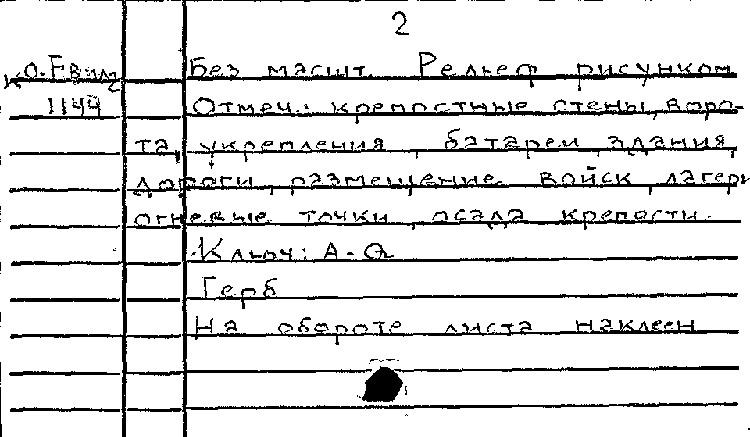 2
Без масшт. Рельеф рисунком
1144 Отмеч.: крепостные стены, воро-
та, укрепления, батареи, здания,
дороги, размещение войск, лагери
огневые точки, осада крепости.
Ключ: А-Q
Герб
На обороте листа наклеен